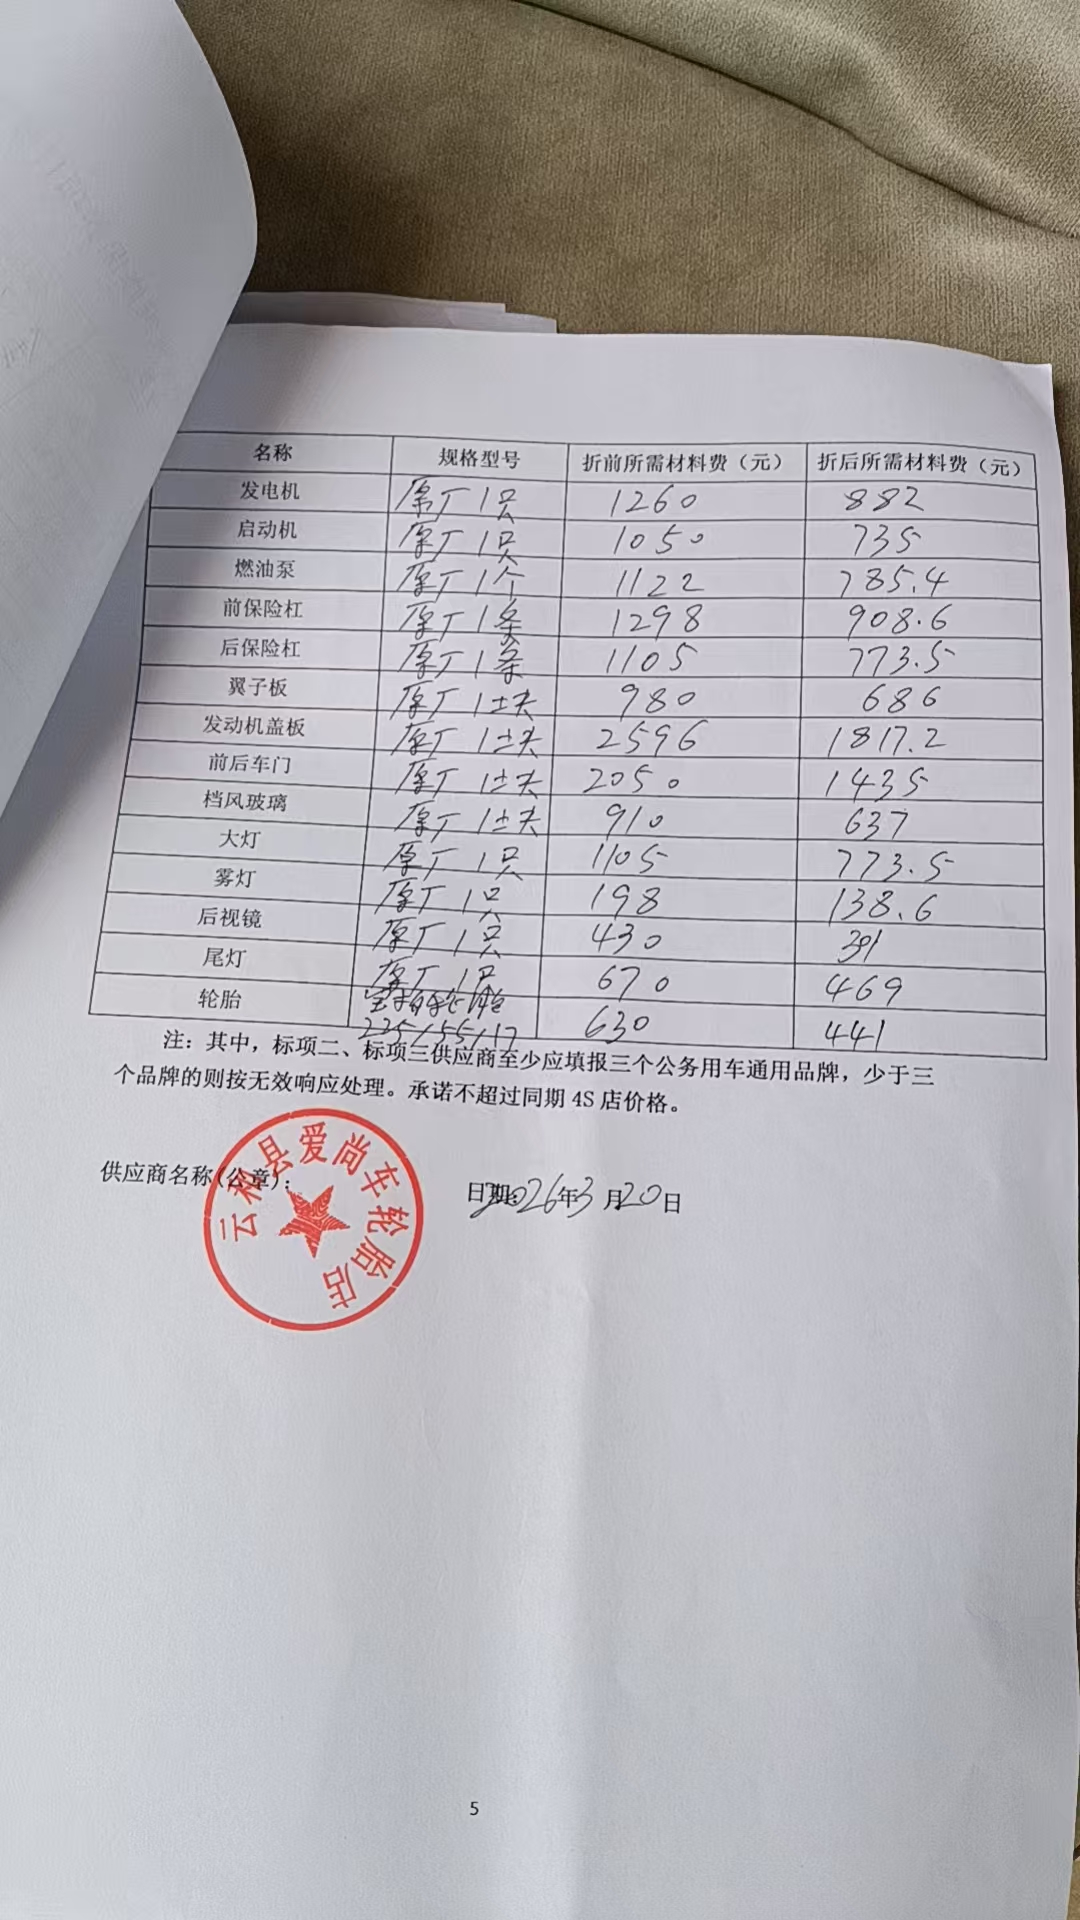 名称 规格型号 折前所需材料费（元） 折后所需材料费（元）
发电机 原厂1只 1260 882
启动机 原厂1只 1050 735
燃油泵 原厂1个 1122 785.4
前保险杠 原厂1条 1298 908.6
后保险杠 原厂1条 1105 773.5
翼子板 原厂1块 980 686
发动机盖板 原厂1块 2596 1817.2
前后车门 原厂1块 2050 1435
档风玻璃 原厂1块 910 637
大灯 原厂1只 1105 773.5
雾灯 原厂1只 198 138.6
后视镜 原厂1只 430 391
尾灯 原厂1只 670 469
轮胎 225/55/17 630 441
注：其中，标项二、标项三供应商至少应填报三个公务用车通用品牌，少于三
个品牌的则按无效响应处理。承诺不超过同期 4S 店价格。
供应商名称(公章)： 日期：2026年3月20日
云和县爱尚车轮胎店
5